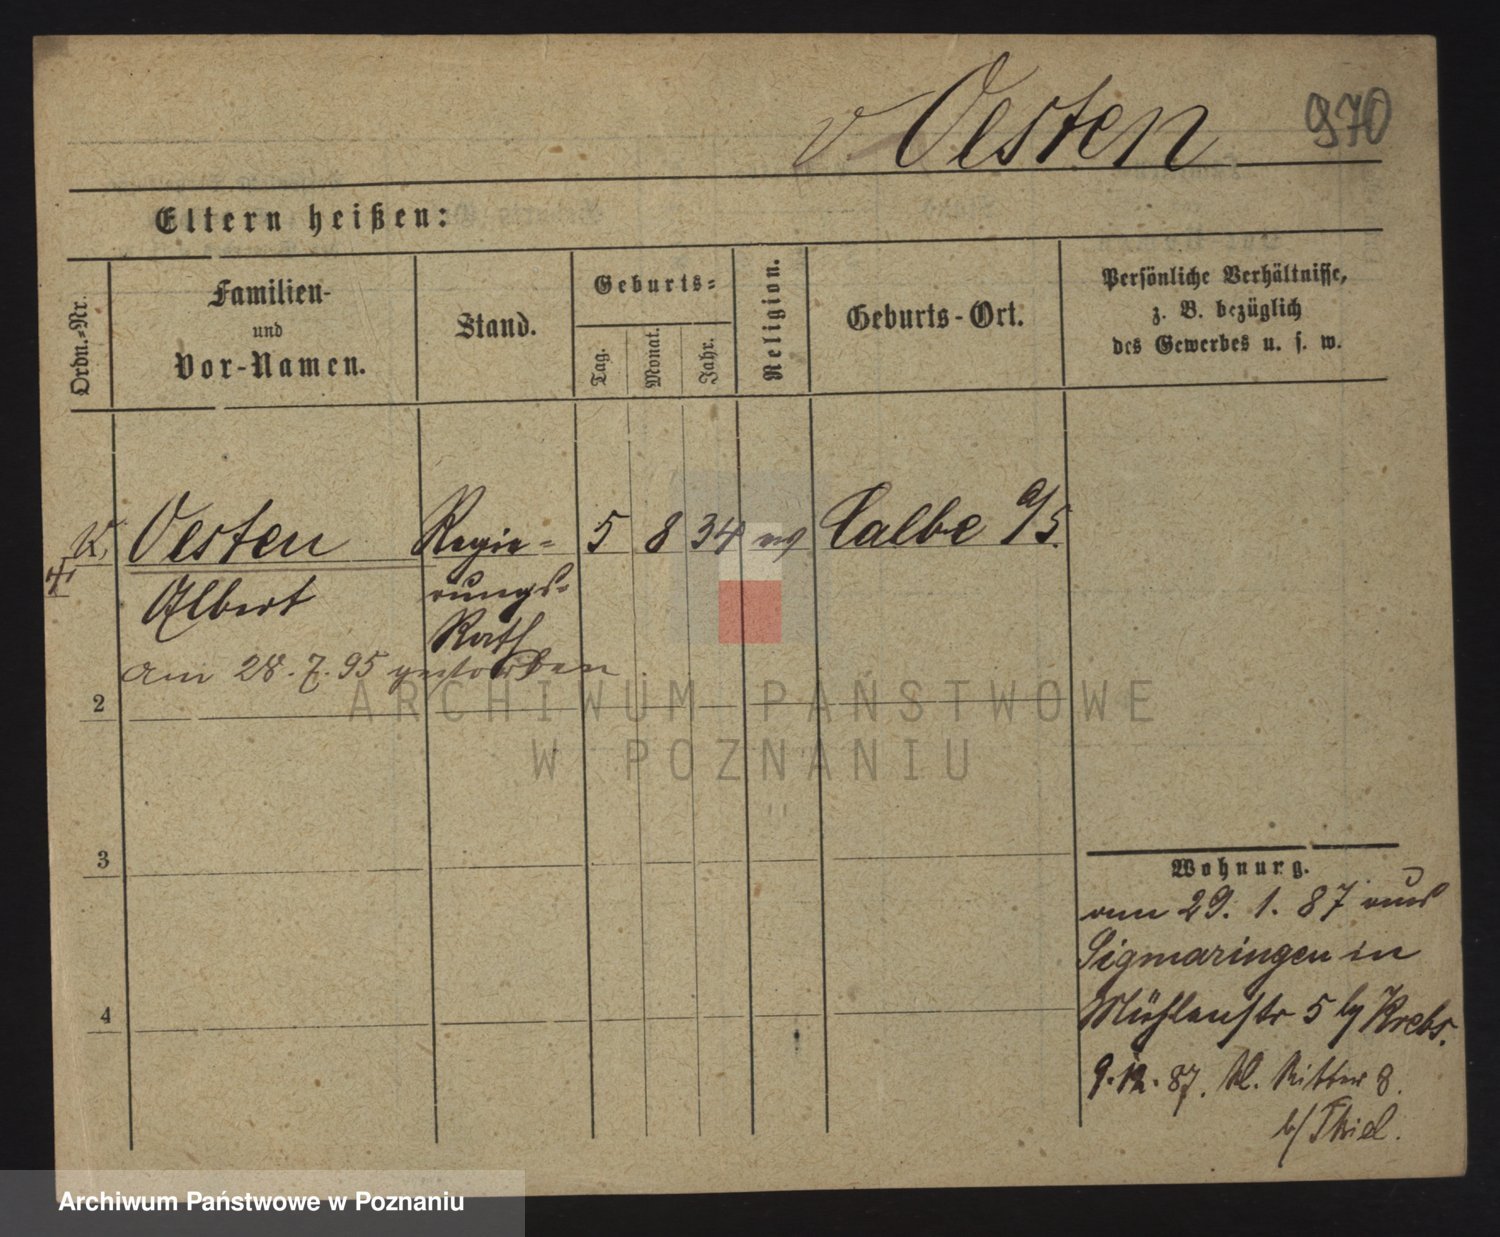 v. Oesten 970
Eltern heißen:
Ordn.-Nr.
Familien-
und
Vor-Namen.
Stand.
Geburts-
Tag.
Monat.
Jahr.
Religion.
Geburts-Ort.
Persönliche Verhältnisse,
z. B. bezüglich
des Gewerbes u. s. w.
Oesten
Albert
am 28.7.95 gestorben
Regie-
rungs-
Rath
5 8 34 ev Calbe a/S.
2
3
4
Wohnung.
am 29. 1. 87 aus
Sigmaringen in
Mühlenstr 5 by Krebs.
9.12.87. Kl. Ritter 8.
b/ Thiel.
ARCHIWUM PAŃSTWOWE
W POZNANIU
Archiwum Państwowe w Poznaniu